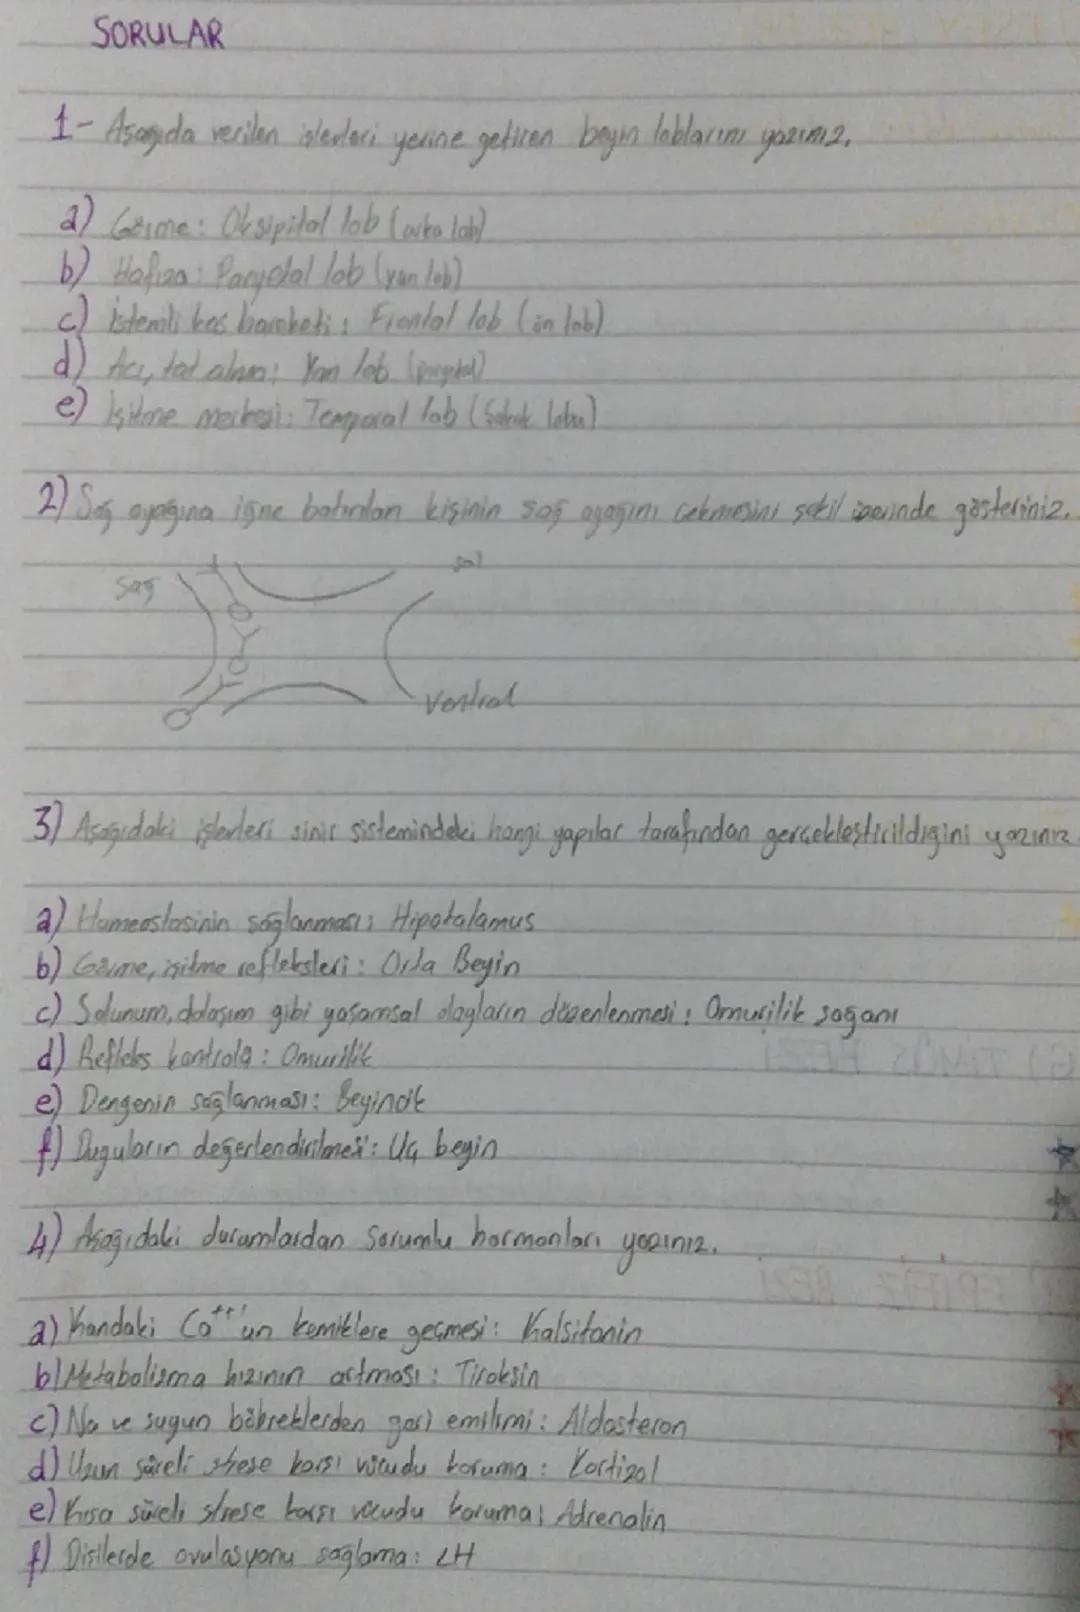 SORULAR
1- Aşağıda verilen işlevleri yerine getiren beyin loblarını yazınız.
a) Görme: Oksipital lob (arka lob)
b) Hafıza: Paryetal lob (yan lob)
c) İstemli kas hareketi: Frontal lob (ön lob)
d) Acı, tat alma: Yan lob (paryetal)
e) İşitme merkezi: Temporal lob (Şakak lobu)
2) Sağ ayağına iğne batırılan kişinin sağ ayağını çekmesini şekil üzerinde gösteriniz.
sağ
sol
Ventral
3) Aşağıdaki işlevleri sinir sistemindeki hangi yapılar tarafından gerçekleştirildiğini yazınız
a) Homeostasinin sağlanması: Hipotalamus
b) Görme, işitme refleksleri: Orta Beyin
c) Solunum, dolaşım gibi yaşamsal olayların düzenlenmesi: Omurilik soğanı
d) Refleks kontrolü: Omurilik
e) Dengenin sağlanması: Beyincik
f) Duyuların değerlendirilmesi: Uç beyin
4) Aşağıdaki durumlardan sorumlu hormonları yazınız.
a) Kandaki Ca⁺⁺'un kemiklere geçmesi: Kalsitonin
b) Metabolizma hızının artması: Tiroksin
c) Na ve suyun böbreklerden geri emilimi: Aldosteron
d) Uzun süreli strese karşı vücudu koruma: Kortizol
e) Kısa süreli strese karşı vücudu koruma: Adrenalin
f) Dişilerde ovulasyonu sağlama: LH